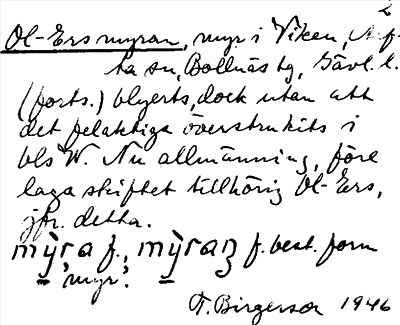 2
Ol-Ersmyran, myr i Viken, Alf-
ta sn, Bollnäs tg, Gävl. l.
(forts.) blyerts, dock utan att
det felaktiga överstrukits i
bls W. Nu allmänning, före
laga skiftet tillhörig Ol-Ers,
jfr. detta.
mỳra f., mỳraṇ f. best. form
'myr'.
F. Birgerson 1946